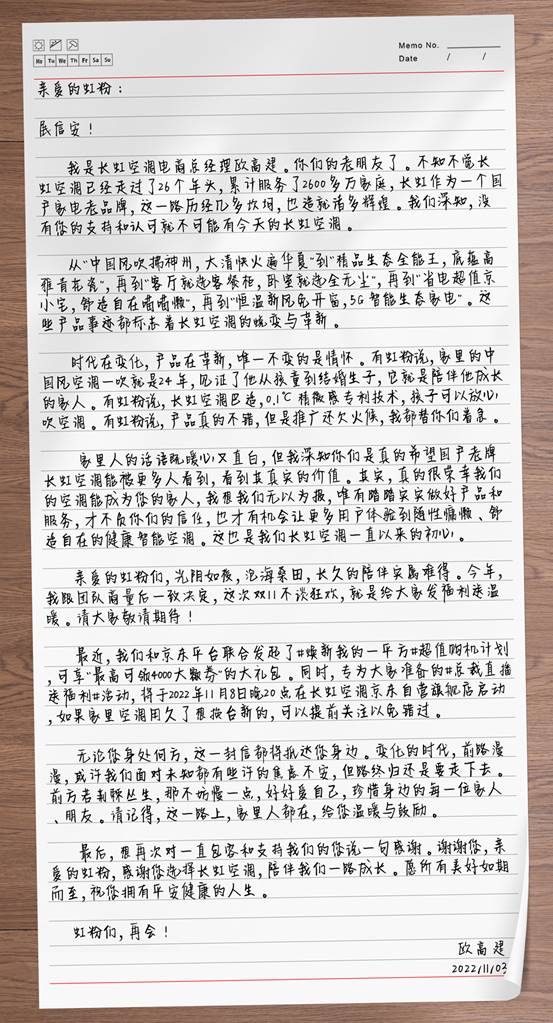 Memo No.
Mo Tu We Th Fr Sa Su
Date / /
亲爱的虹粉：
展信安！
我是长虹空调电商总经理欧高建。你们的老朋友了。不知不觉长
虹空调已经走过了26个年头，累计服务了2600多万家庭，长虹作为一个国
产家电老品牌，这一路历经几多坎坷，也造就诸多辉煌。我们深知，没
有您的支持和认可就不可能有今天的长虹空调。
从"中国风吹拂神州，大清快火遍华夏"到"精品生态全能王，底蕴高
雅青花瓷"，再到"客厅就选客餐柜，卧室就选全无尘"，再到"省电超值京
小宅，舒适自在嘻嘻懒"，再到"恒温新风免开窗，5G智能生态家电"。这
些产品事迹都标志着长虹空调的蜕变与革新。
时代在变化，产品在革新，唯一不变的是情怀。有虹粉说，家里的中
国风空调一吹就是24年，见证了他从孩童到结婚生子，它就是陪伴他成长
的家人。有虹粉说，长虹空调巴适，0.1℃精微感专利技术，孩子可以放心
吹空调。有虹粉说，产品真的不错，但是推广还欠火候，我都替你们着急。
家里人的话语既暖心又直白，但我深知你们是真的希望国产老牌
长虹空调能被更多人看到，看到其真实的价值。其实，真的很荣幸我们
的空调能成为您的家人，我想我们无以为报，唯有踏踏实实做好产品和
服务，才不负你们的信任，也才有机会让更多用户体验到随性慵懒、舒
适自在的健康智能空调。这也是我们长虹空调一直以来的初心。
亲爱的虹粉们，光阴如梭，沧海桑田，长久的陪伴实属难得。今年，
我跟团队商量后一致决定，这次双11不谈狂欢，就是给大家发福利送温
暖。请大家敬请期待！
最近，我们和京东平台联合发起了#焕新我的一平方#超值购机计划
，可享"最高可领4000大额券"的大礼包。同时，专为大家准备的#总裁直播
送福利#活动，将于2022年11月8日晚20点在长虹空调京东自营旗舰店启动
，如果家里空调用久了想换台新的，可以提前关注以免错过。
无论您身处何方，这一封信都将抵达您身边。变化的时代，前路漫
漫，或许我们面对未知都有些许的焦虑不安，但路终归还是要走下去。
前方若荆棘丛生，那不妨慢一点，好好爱自己，珍惜身边的每一位家人
、朋友。请记得，这一路上，家里人都在，给您温暖与鼓励。
最后，想再次对一直包容和支持我们的您说一句感谢。谢谢您，亲
爱的虹粉，感谢您选择长虹空调，陪伴我们一路成长。愿所有美好如期
而至，祝您拥有平安健康的人生。
虹粉们，再会！
欧高建
2022/11/03